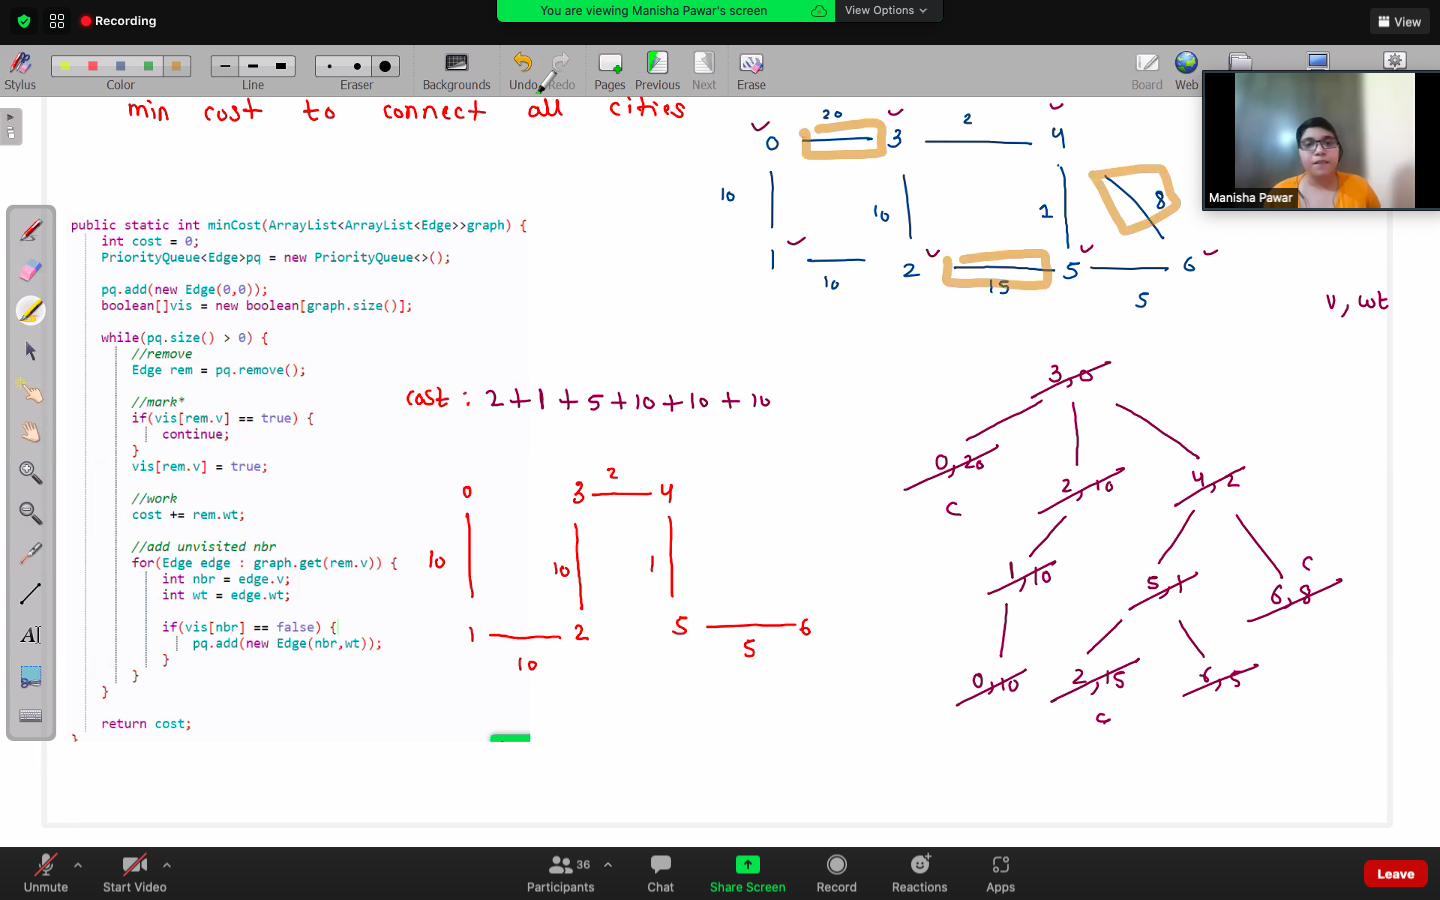 Recording
You are viewing Manisha Pawar's screen
View Options
View
Stylus
Color
Line
Eraser
Backgrounds
Undo
Redo
Pages
Previous
Next
Erase
Board
Web
Manisha Pawar
min cost to connect all cities
0 20 3 2 4
10 10 1 8
1 10 2 15 5 5 6
v, wt
public static int minCost(ArrayList<ArrayList<Edge>>graph) {
int cost = 0;
PriorityQueue<Edge>pq = new PriorityQueue<>();
pq.add(new Edge(0,0));
boolean[]vis = new boolean[graph.size()];
while(pq.size() > 0) {
//remove
Edge rem = pq.remove();
//mark*
if(vis[rem.v] == true) {
continue;
}
vis[rem.v] = true;
//work
cost += rem.wt;
//add unvisited nbr
for(Edge edge : graph.get(rem.v)) {
int nbr = edge.v;
int wt = edge.wt;
if(vis[nbr] == false) {
pq.add(new Edge(nbr,wt));
}
}
}
return cost;
}
cost : 2+1+5+10+10+10
0 3 2 4
10 10 1
1 10 2 5 5 6
3,0
0,20 2,10 4,2
C
1,10 5,1 6,8 C
0,10 2,15 6,5
C
A
Unmute
Start Video
36
Participants
Chat
Share Screen
Record
Reactions
Apps
Leave